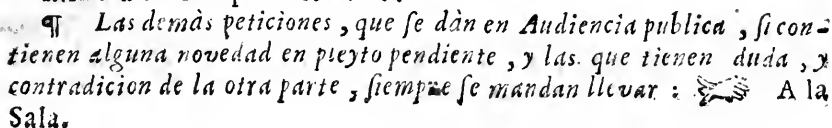 ¶ Las demàs peticiones, que ſe dàn en Audiencia publica, ſi con-
tienen alguna novedad en pleyto pendiente, y las que tienen duda, y
contradicion de la otra parte, ſiempre ſe mandan llevar: ☞ A la
Sala.